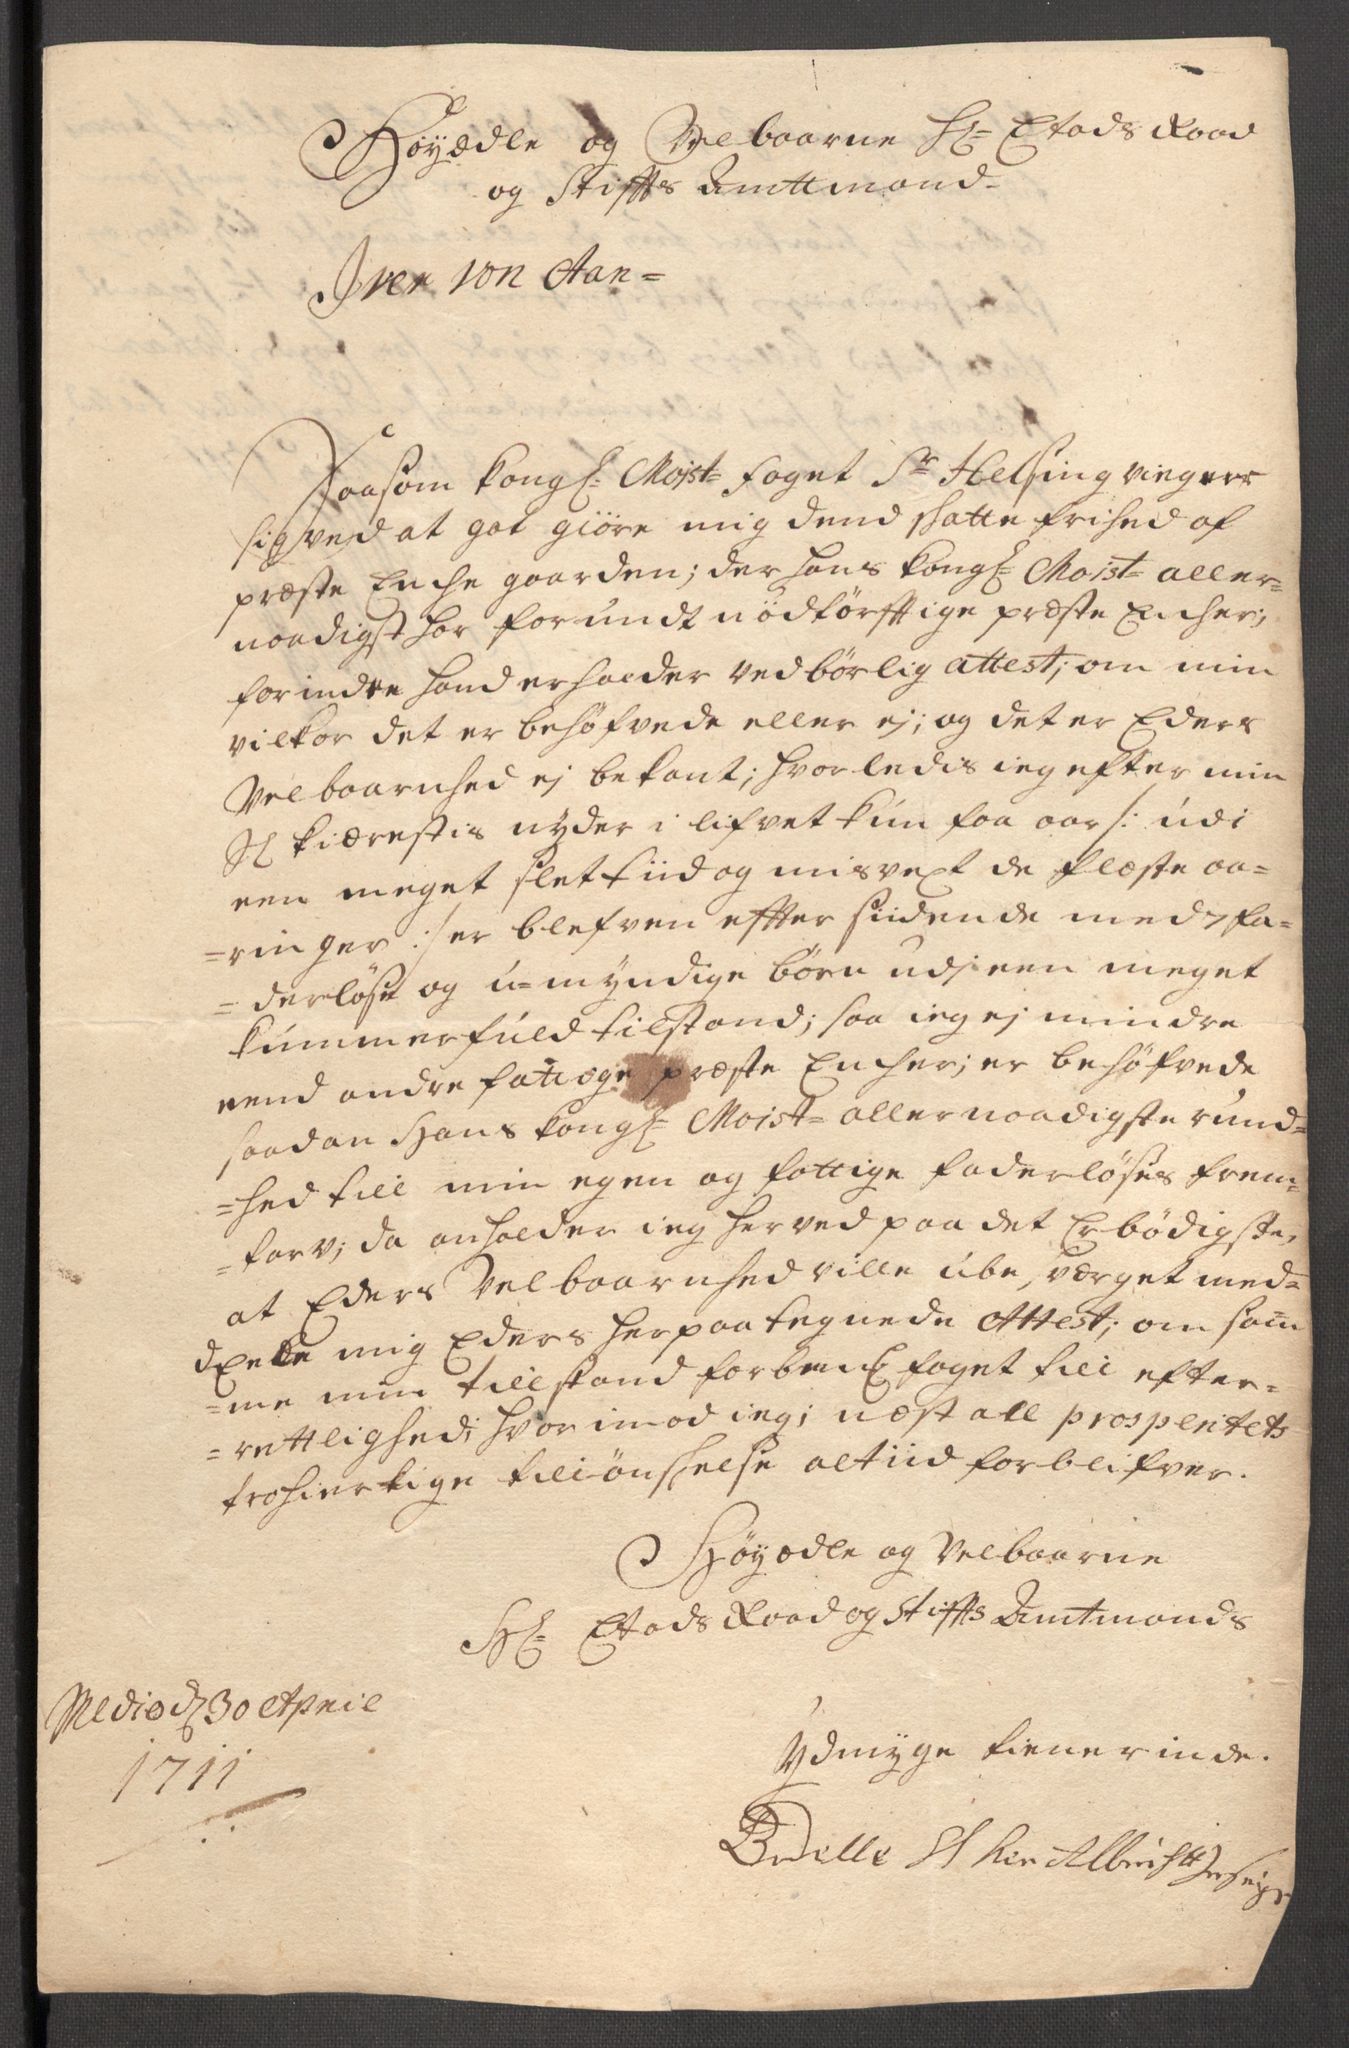 Höyædle og Velbaarne Hr= Etads Raad
og Stiffts Amttmand=
Iver von Aan=
Saasom kongl: Maist= foget Sr Helsing viegrer
sig ved at got giöre mig dend skatte frihed af
præste Enche gaarden; der hans kongl= Maist= aller=
naadigst har forundt nödtörfftige præste Encher;
forindte hand erholder vedbörlig attest; om min
vilkor det er behöfvede eller ej; og det er Eders
Velbaarnhed ej bekant; hvorledis ieg efter min
Sl kiærestis nyder i lifvet kun faa aar /: udi
een meget slet tiid og misvext de flæste aa=
=ringer :/ er blefven effter siidende med 7 fa=
=derlöse og u=myndige börn udj een meget
kummerfuld tilstand; saa ieg ej mindre
eend andre fattige præste Encher; er behöfvede
saadan Hans kongl= Maist= allernaadigste rund=
=hed till min egen og fattige faderlöses frem=
=tarv; da anholder ieg herved paa det Erbödigste,
at Eders Velbaarnhed ville ubesværget med=
deele mig Eders herpaa tegnede Attest; om sam
=me min tillstand forbemte foget till efter=
=rettlighed; hvorimod ieg; næst all prosperitets
trohiertige tillönskelse altiid forblifver.
Höyædle og Velbaarne
Hr= Etads Raad og Stiffts Amtmands
Medie d 30 Aprile
1711
Ydmyge tienerinde.
Bodelle Sl her Albricht